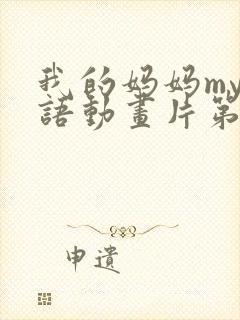 我的妈妈my
語動畫片第
申遺